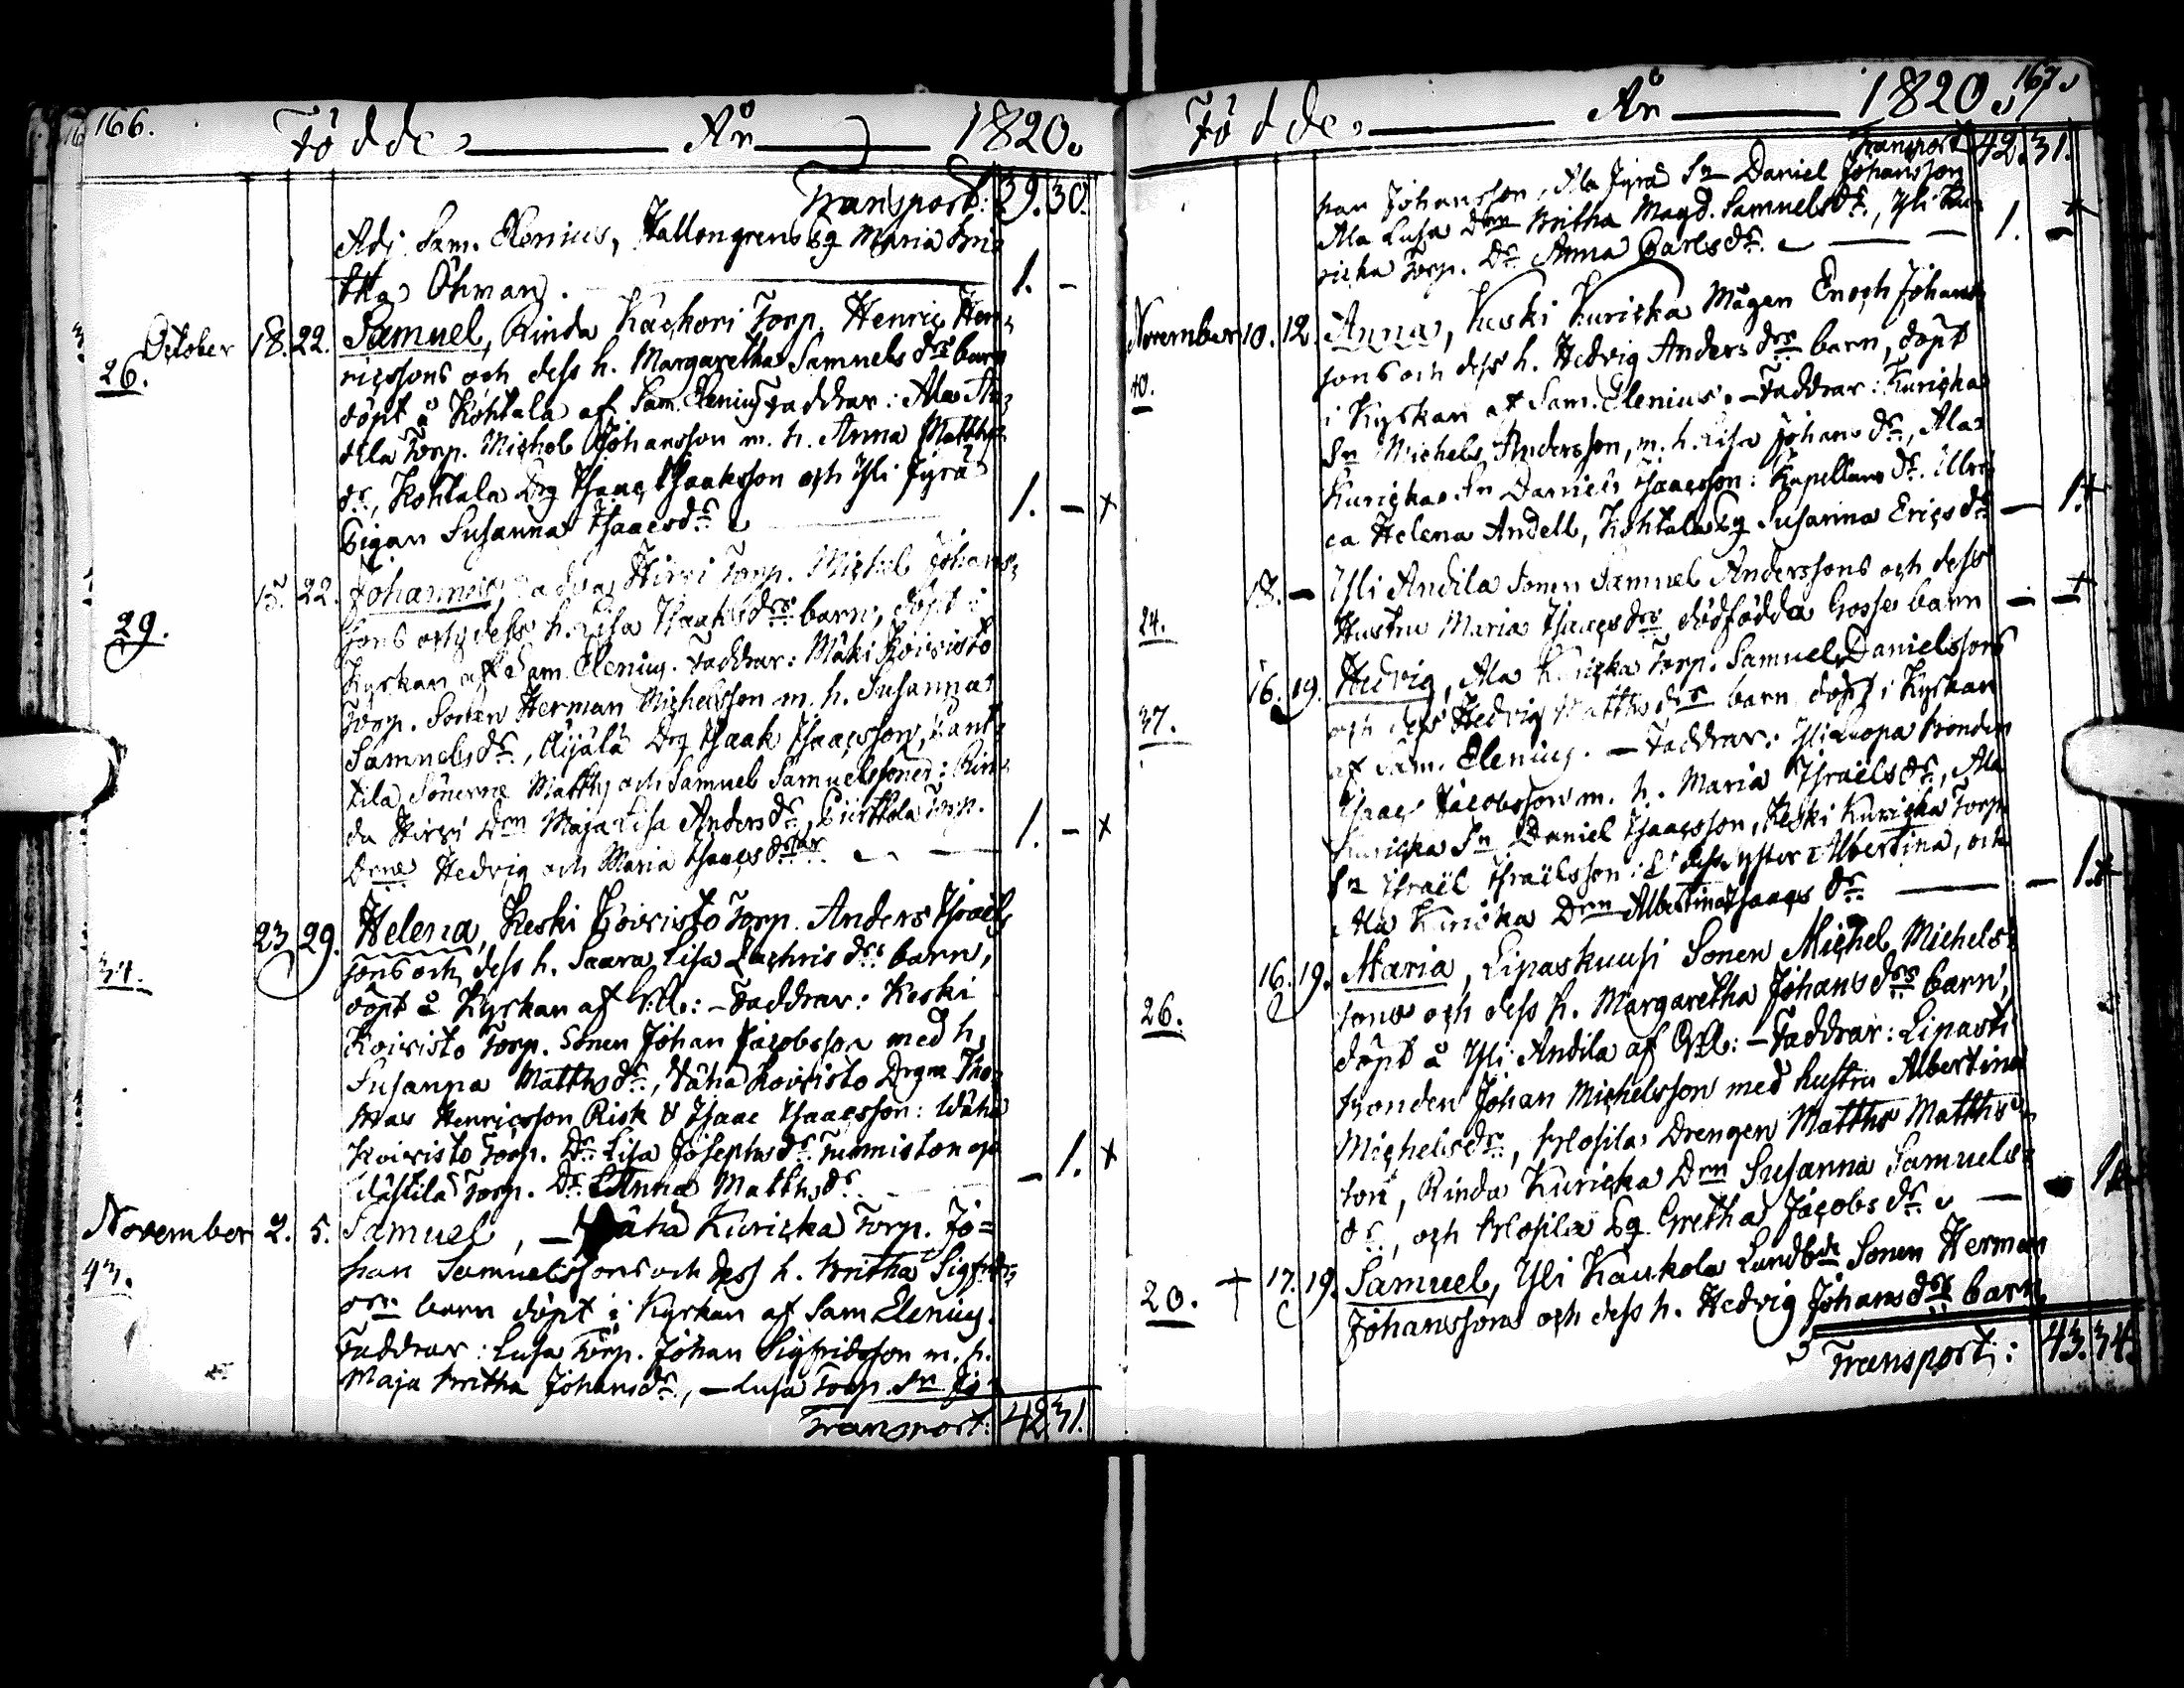 166.
Födde, År 1820.
Transport: 39. 30.
Adj. Sam. Elenius, Hallongrens Eg Maria Bri-
tha Öhman. 1. -
October 18. 22. Samuel, Rinda Käckori Torp. Henric Hen-
26.
ricssons och dess h. Margaretha Samuels drs barn
döpt å Kohtala af Sam. Elenius Faddrar: Ala An-
dila Torp. Michel Johansson m. h. Anna Matths
dr, Kohtala Drg Isaac Isaaksson och Yli Jyrä
Pigan Susanna Isaacsdr 1. - x
15. 22. Johannes, Hirvi Torp. Michel Johans-
29.
sons och dess h. Lisa Isaaks drs barn, döpt i
Kyrkan af Sam Elenius. Faddrar: Mäki Koivisto
Torp. Sonen Herman Michelsson m. h. Susanna
Samuelsdr, Äijälä Drg Isaak Isaacsson, Pant-
tila Sönerne Matths och Samuel Samuelssoner: Rin-
da Hirvi Drn Maja Lisa Anders dr, Piirttola Torp.
Drne Hedvig och Maria Isaacs drar 1. - x
23. 29. Helena, Keski Koivisto Torp. Anders Israels
34.
sons och dess h. Saara Lisa Zachris drs barn,
döpt å Kyrkan af : - Faddrar: Keski
Koivisto Torp. Sonen Johan Jacobsson med h.
Susanna Matthsdr, Wähä Koivisto Drgne Tho-
mas Henricsson Risk & Isaac Isaacsson: Wähä
Koivisto Torp. Dr. Lisa Josephsdr Tuomiston o
Täßtilä Torp. Dr. Anna Matthsdr - 1. x
November 2. 5. Samuel, - Wähä Kuricka Torp. Jo=
43.
han Samuelssons och dess h. Britha Sigfrids
drs barn döpt i Kyrkan af Sam Elenius.
Faddrar: Lusa Torp. Johan Sigfridsson m. h.
Maja Britha Johansdr, - Lusa Torp. Sn Jo-
Transport: 42 31.
167.
Födde, År 1820.
Transport 42. 31.
han Johansson, Ala Jyrä Sn Daniel Johansson
Ala Lusa Drn Britha Magd. Samuelsdr, Yli Ku-
ricka Torp. Dr Anna Carlsdr. 1. -
November 10. 12. Anna, Keski Kuricka Mågen Enoch Johans
40.
sons och dess h. Hedvig Anders drs barn, döpt
i Kyrkan af Sam. Elenius. - Faddrar: Kuricka
Sn Michel Andersson, m. h. Lisa Johans dr, Ala
Kuricka Sn Daniel Isaacsson: Kapellans dr. Ulri-
ca Helena Andell, Kohtala Eg Susanna Ericsdr - 1.
18. - Yli Andila Sonen Samuel Anderssons och dess
24.
Hustru Maria Isaacs drs dödfödda Gosse barn - -
16. 19. Hedvig, Ala Kuricka Torp. Samuel Danielssons
37.
och dess Hedvig Matths drs barn döpt i Kyrkan
af Sam. Elenius. - Faddrar: Yli Luopa bonden
Isaac Jacobsson m. h. Maria Israëlsdr, Ala
Kuricka Sn Daniel Isaacsson, Keski Kuricka Torp
Sn Israël Israëlsson: dess syster Albertina, och
Ala Kuricka Drn Albertina Isaacs dr - 1.
16. 19. Maria, Lipaskuusi Sonen Michel Michels-
26.
sons och dess h. Margaretha Johans drs barn,
döpt å Yli Andila af : - Faddrar: Lipasti
bonden Johan Michelsson med hustru Albertina
Michelsdr, Klosila Drengen Matths Matths-
son, Rinda Kuricka Drn Susanna Samuels-
dr, och Klosila Eg Gretha Jacobsdr. - 1.
20. + 17. 19. Samuel, Yli Kaukola Landbde Sonen Herman
Johanssons och dess h. Hedvig Johansdrs barn
Transport: 43. 34.